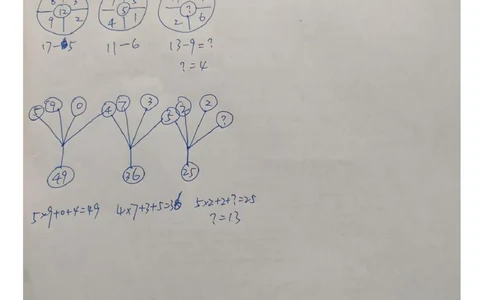 12 5 ?
9 2 4 1 2 6
17-5 11-6 13-9=?
?=4
5 9 0 4 7 3 5 2 2 ?
49 36 25
5×9+0+4=49 4×7+3+5=36 5×2+2+?=25
?=13